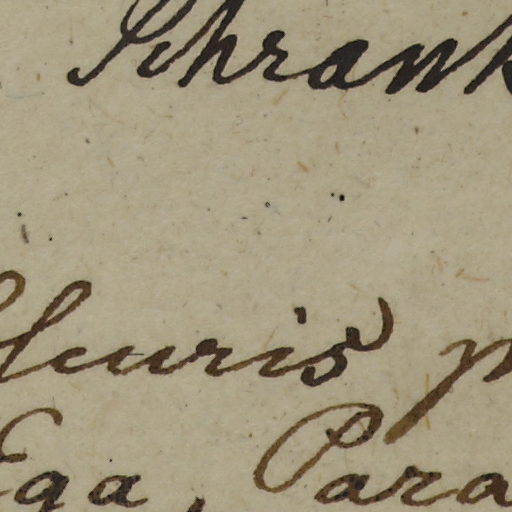 Schrank
leuris p
Ega, Para